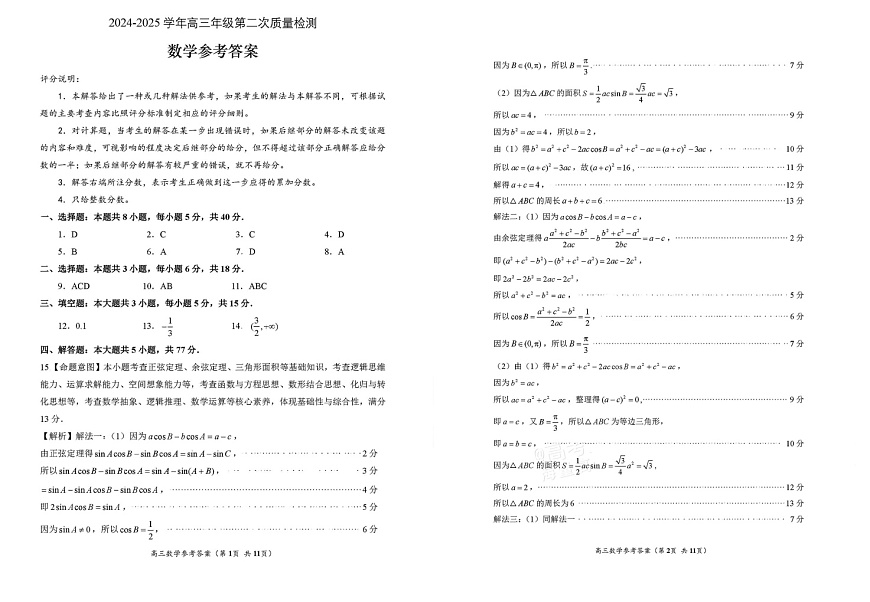 2024-2025 学年高三年级第二次质量检测
数学参考答案
评分说明：
1．本解答给出了一种或几种解法供参考，如果考生的解法与本解答不同，可根据试
题的主要考查内容比照评分标准制定相应的评分细则。
2．对计算题，当考生的解答在某一步出现错误时，如果后继部分的解答未改变该题
的内容和难度，可视影响的程度决定后继部分的给分，但不得超过该部分正确解答应给分
数的一半；如果后继部分的解答有较严重的错误，就不再给分。
3．解答右端所注分数，表示考生正确做到这一步应得的累加分数。
4．只给整数分数。
一、选择题：本题共 8 小题，每小题 5 分，共 40 分．
1．D 2．C 3．C 4．D
5．B 6．A 7．D 8．A
二、选择题：本题共 3 小题，每小题 6 分，共 18 分．
9．ACD 10．AB 11．ABC
三、填空题：本大题共 3 小题，每小题 5 分，共 15 分．
12．0.1 13．−1/3 14．(3/2,+∞)
四、解答题：本大题共 5 小题，共 77 分．
15【命题意图】本小题考查正弦定理、余弦定理、三角形面积等基础知识，考查逻辑思维
能力、运算求解能力、空间想象能力等，考查函数与方程思想、数形结合思想、化归与转
化思想等，考查数学抽象、逻辑推理、数学运算等核心素养，体现基础性与综合性，满分
13 分．
【解析】解法一：（1）因为 a cos B − b cos A = a − c ，
由正弦定理得 sin A cos B − sin B cos A = sin A − sin C ，2 分
所以 sin A cos B − sin B cos A = sin A − sin(A + B) ，3 分
= sin A − sin A cos B − sin B cos A ，4 分
即 2 sin A cos B = sin A ，5 分
因为 sin A ≠ 0 ，所以 cos B = 1/2 ，6 分
高三数学参考答案（第 1页 共 11页）
因为 B ∈ (0,π) ，所以 B = π/3 ．7 分
（2）因为△ABC 的面积 S = 1/2 ac sin B = √3/4 ac = √3 ，
所以 ac = 4 ，9 分
因为 b² = ac = 4 ，所以 b = 2 ，
由（1）得 b² = a² + c² − 2ac cos B = a² + c² − ac = (a + c)² − 3ac ，10 分
所以 ac = (a + c)² − 3ac ，故 (a + c)² = 16 ，11 分
解得 a + c = 4 ，12 分
所以△ABC 的周长 a + b + c = 6 13 分
解法二：（1）因为 a cos B − b cos A = a − c ，
由余弦定理得 a (a² + c² − b²)/2ac − b (b² + c² − a²)/2bc = a − c ，2 分
即 (a² + c² − b²) − (b² + c² − a²) = 2ac − 2c² ，
即 2a² − 2b² = 2ac − 2c² ，
所以 a² + c² − b² = ac ，5 分
所以 cos B = (a² + c² − b²)/2ac = 1/2 ，6 分
因为 B ∈ (0,π) ，所以 B = π/3 7 分
（2）由（1）得 b² = a² + c² − 2ac cos B = a² + c² − ac ，
因为 b² = ac ，
所以 ac = a² + c² − ac ，整理得 (a − c)² = 0 ，9 分
即 a = c ，又 B = π/3 ，所以△ABC 为等边三角形，
即 a = b = c ，10 分
因为△ABC 的面积 S = 1/2 ac sin B = √3/4 a² = √3 ，
所以 a = 2 ，12 分
所以△ABC 的周长为 6 13 分
解法三：（1）同解法一 7 分
高三数学参考答案（第 2页 共 11页）